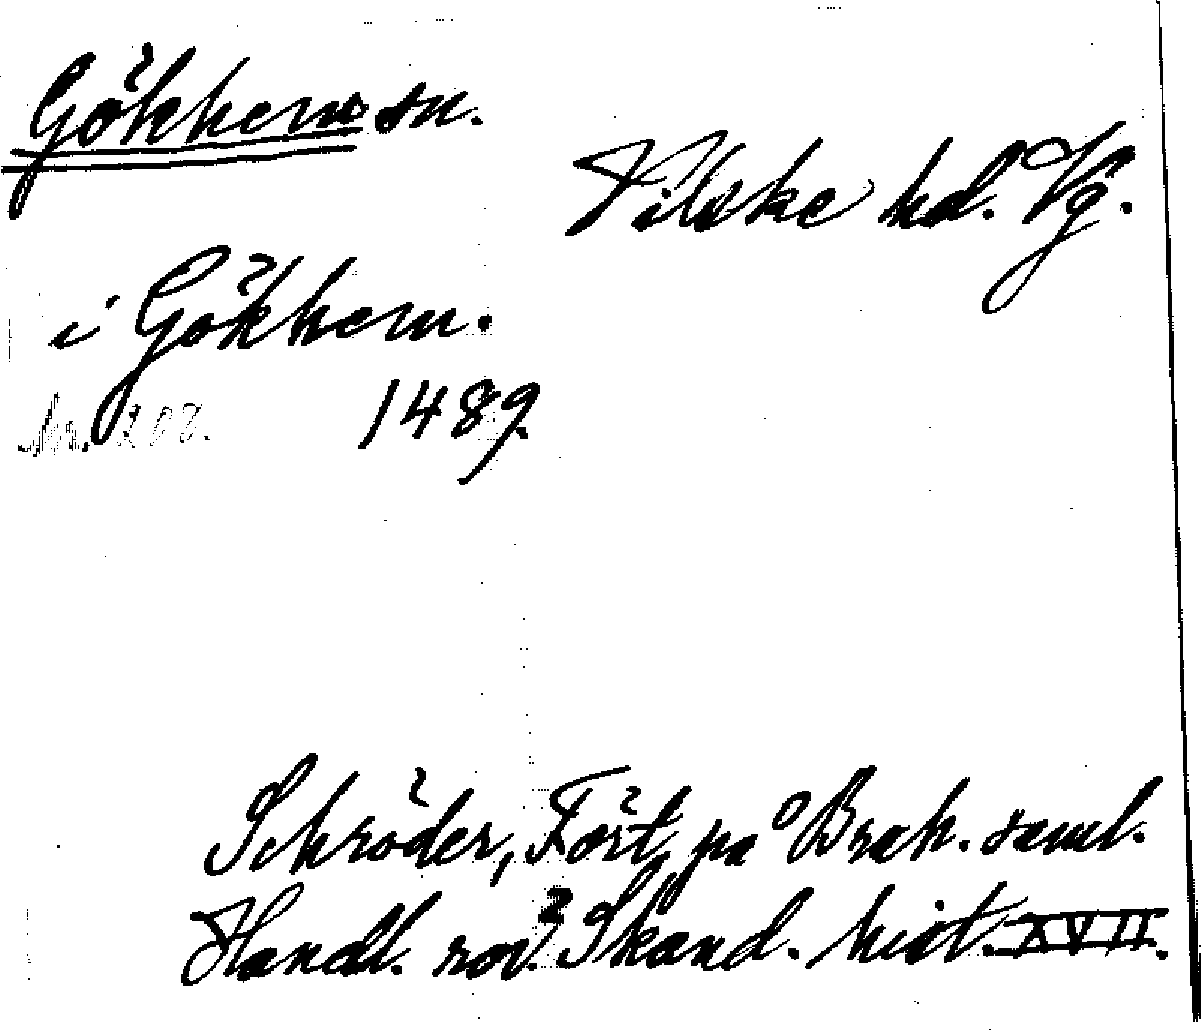 Gökhems sn.
Vilske hd. Vg.
i Gökhem.
Nr. 208. 1489.
Schröder, Fört. på Brah. saml.
Handl. rör. Skand. hist. XVII.